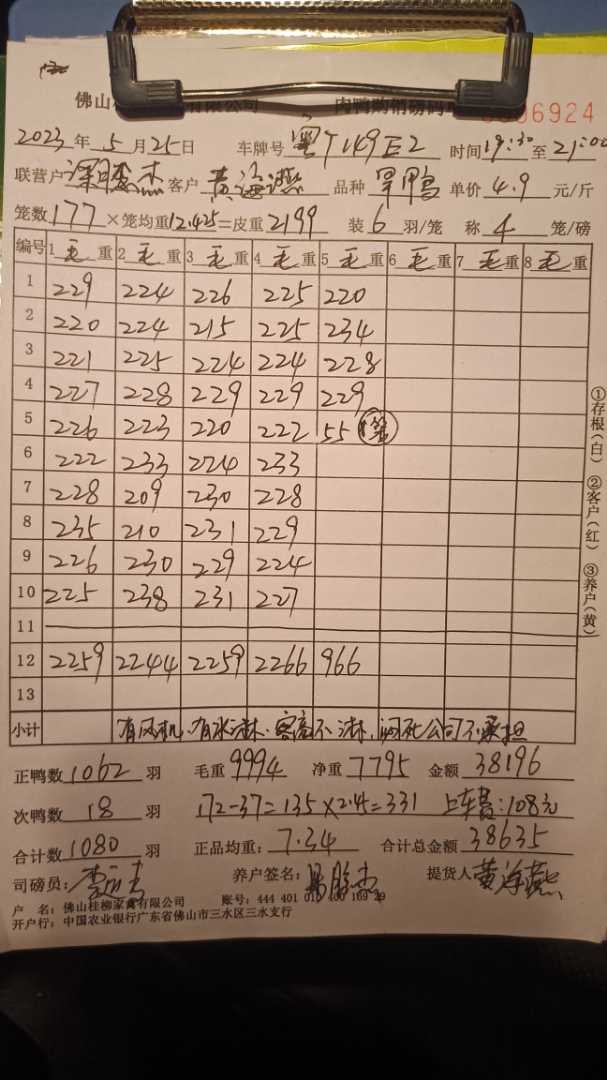 佛山 有限公司 肉鸭购销磅码 6924
2023年5月25日 车牌号 粤T149E2 时间19:30至21:00
联营户 杰 客户 黄海燕 品种 旱鸭 单价4.9元/斤
笼数177×笼均重12.425=皮重2199 装6羽/笼 称4笼/磅
编号 1毛重 2毛重 3毛重 4毛重 5毛重 6毛重 7毛重 8毛重
1 229 224 226 225 220
2 220 224 215 225 234
3 221 225 224 224 228
4 227 228 229 229 229
5 226 223 220 222 55
6 222 233 224 233
7 228 209 230 228
8 235 210 231 229
9 226 230 229 224
10 225 238 231 227
11
12 2259 2244 2259 2266 966
13
小计 有风机、有水淋、客商不淋,闷死公司不承担
正鸭数1062羽 毛重9994 净重7795 金额38196
次鸭数18羽 172-37=135×2.45=331 上车费:108元
合计数1080羽 正品均重:7.34 合计总金额38635
司磅员: 养户签名: 杰 提货人黄海燕
户 名:佛山桂柳家禽有限公司 账号:444 401 010 400 169 29
开户行:中国农业银行广东省佛山市三水区三水支行
①存根(白) ②客户(红) ③养户(黄)